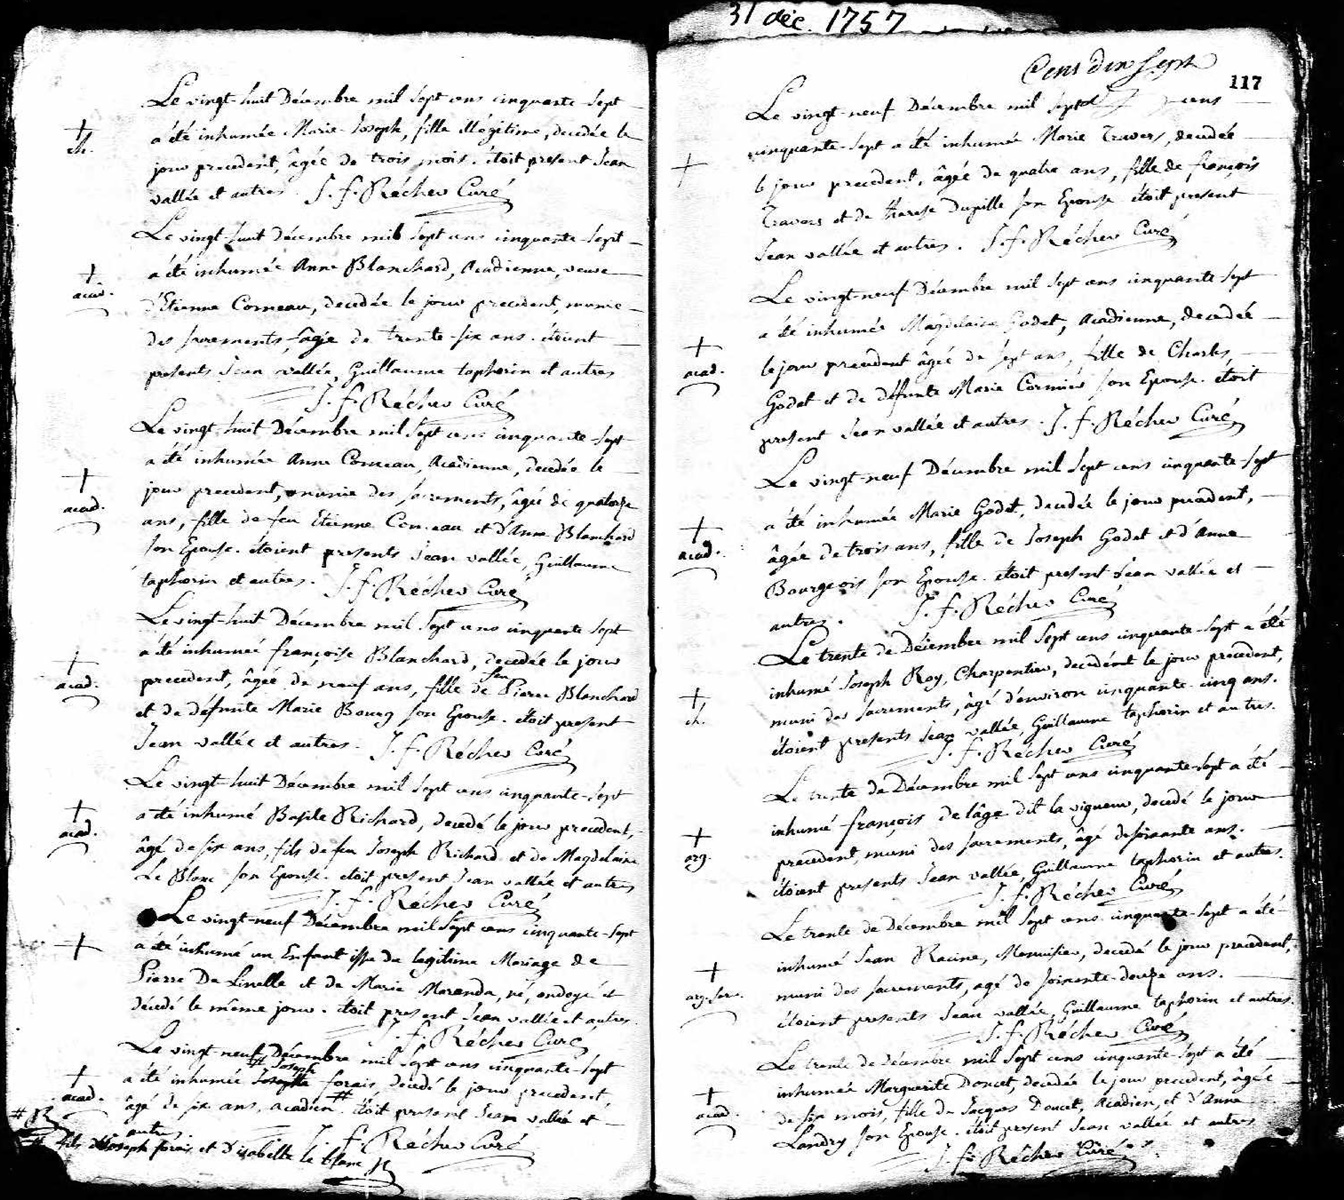 31 déc. 1757
Le vingt-huit Décembre mil sept cens cinquante-sept
a été inhumée Marie-Joseph, fille illégitime, décédée le
ch.
jour precedent, âgée de trois mois. étoit present Jean
vallée et autres. J. f. Récher Curé
Le vingt-huit décembre mil sept cens cinquante-sept
a été inhumée Anne Blanchard, Acadienne, veuve
acad.
d'Etienne Comeau, decedée le jour precedent, munie
des sacrements, âgée de trente-six ans. étoient
presents Jean vallée, Guillaume taphorin et autres
J. f. Récher Curé
Le vingt-huit Décembre mil sept cens cinquante-sept
a été inhumée Anne Comeau, Acadienne, decedée le
jour precedent, munie des sacrements, âgée de quatorze
acad.
ans, fille de feu Etienne Comeau et d'Anne Blanchard
son Epouse. étoient presents Jean vallée, Guillaume
taphorin et autres. J. f. Récher Curé
Le vingt-huit Décembre mil sept cens cinquante sept
a été inhumée françoise Blanchard, decedée le jour
acad.
precedent, âgée de neuf ans, fille de feu Pierre Blanchard
et de défunte Marie Bourg son Epouse. étoit present
Jean vallée et autres. J. f. Récher Curé
Le vingt-huit Décembre mil sept cens cinquante-sept
a été inhumé Basile Richard, decedé le jour precedent,
acad.
âgé de six ans, fils de feu Joseph Richard et de Magdelaine
Le Blanc son Epouse. étoit present Jean vallée et autres
J. f. Récher Curé
Le vingt-neuf Décembre mil sept cens cinquante-sept
a été inhumé un Enfant issu du legitime Mariage de
Pierre De Linelle et de Marie Maranda, né, ondoyé et
décédé le même jour. étoit present Jean vallée et autres.
J. f. Récher Curé
Le vingt neuf Décembre mil sept cens cinquante-sept
# Joseph
a été inhumée forais, decedé le jour precedent,
acad.
âgé de six ans, acadien. # étoit present Jean vallée et
autres J. f. Récher Curé
# fils de Joseph forais et D'isabelle le blanc R
# R
Cens dix sept
117
Le vingt-neuf Décembre mil sept cens
cinquante-sept a été inhumée Marie Travers, decedée
le jour precedent, âgée de quatre ans, fille de françois
Travers et de therese Dupille son Epouse. étoit present
Jean vallée et autres. J. f. Récher Curé
Le vingt-neuf Décembre mil sept cens cinquante sept
a été inhumée Magdelaine Godet, Acadienne, decedée
acad.
le jour precedent âgée de sept ans, fille de Charles
Godet et de défunte Marie Cormier son Epouse. étoit
present Jean vallée et autres. J. f. Récher Curé
Le vingt-neuf Décembre mil sept cens cinquante sept
a été inhumée Marie Godet, decedée le jour precedent,
acad.
âgée de trois ans, fille de Joseph Godet et d'Anne
Bourgeois son Epouse. étoit present Jean vallée et
autres. J. f. Récher Curé
Le trente de Décembre mil sept cens cinquante-sept a été
inhumé Joseph Roy, Charpentier, decedé le jour precedent,
ch.
muni des sacrements, âgé d'environ cinquante-cinq ans.
étoient presents Jean vallée, Guillaume taphorin et autres.
J. f. Récher Curé
Le trente de Décembre mil sept cens cinquante-sept a été
inhumé françois delâge dit la vigueur, decedé le jour
arg.
precedent, muni des sacrements, âgé de soixante ans.
étoient presents Jean vallée, Guillaume taphorin et autres.
J. f. Récher Curé
Le trente de décembre mil sept cens cinquante-sept a été
inhumé Jean Racine, Menuisier, decedé le jour precedent,
muni des sacrements, agé de soixante-douze ans.
étoient presents Jean vallée, Guillaume taphorin et autres.
J. f. Récher Curé
Le trente de décembre mil sept cens cinquante-sept a été
inhumée Marguerite Doucet, decedée le jour precedent, âgée
acad.
de six mois, fille de Jacques Doucet, Acadien, et d'Anne
Landry son Epouse. étoit present Jean vallée et autres
J. f. Récher Curé